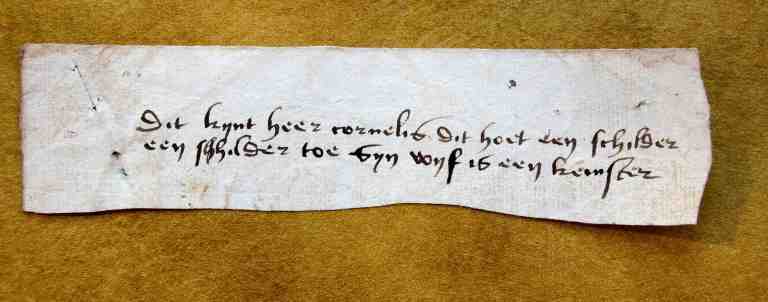 dit kynt heer cornelis dit hoet een schilder
een schilder toe syn wyf is een kemster